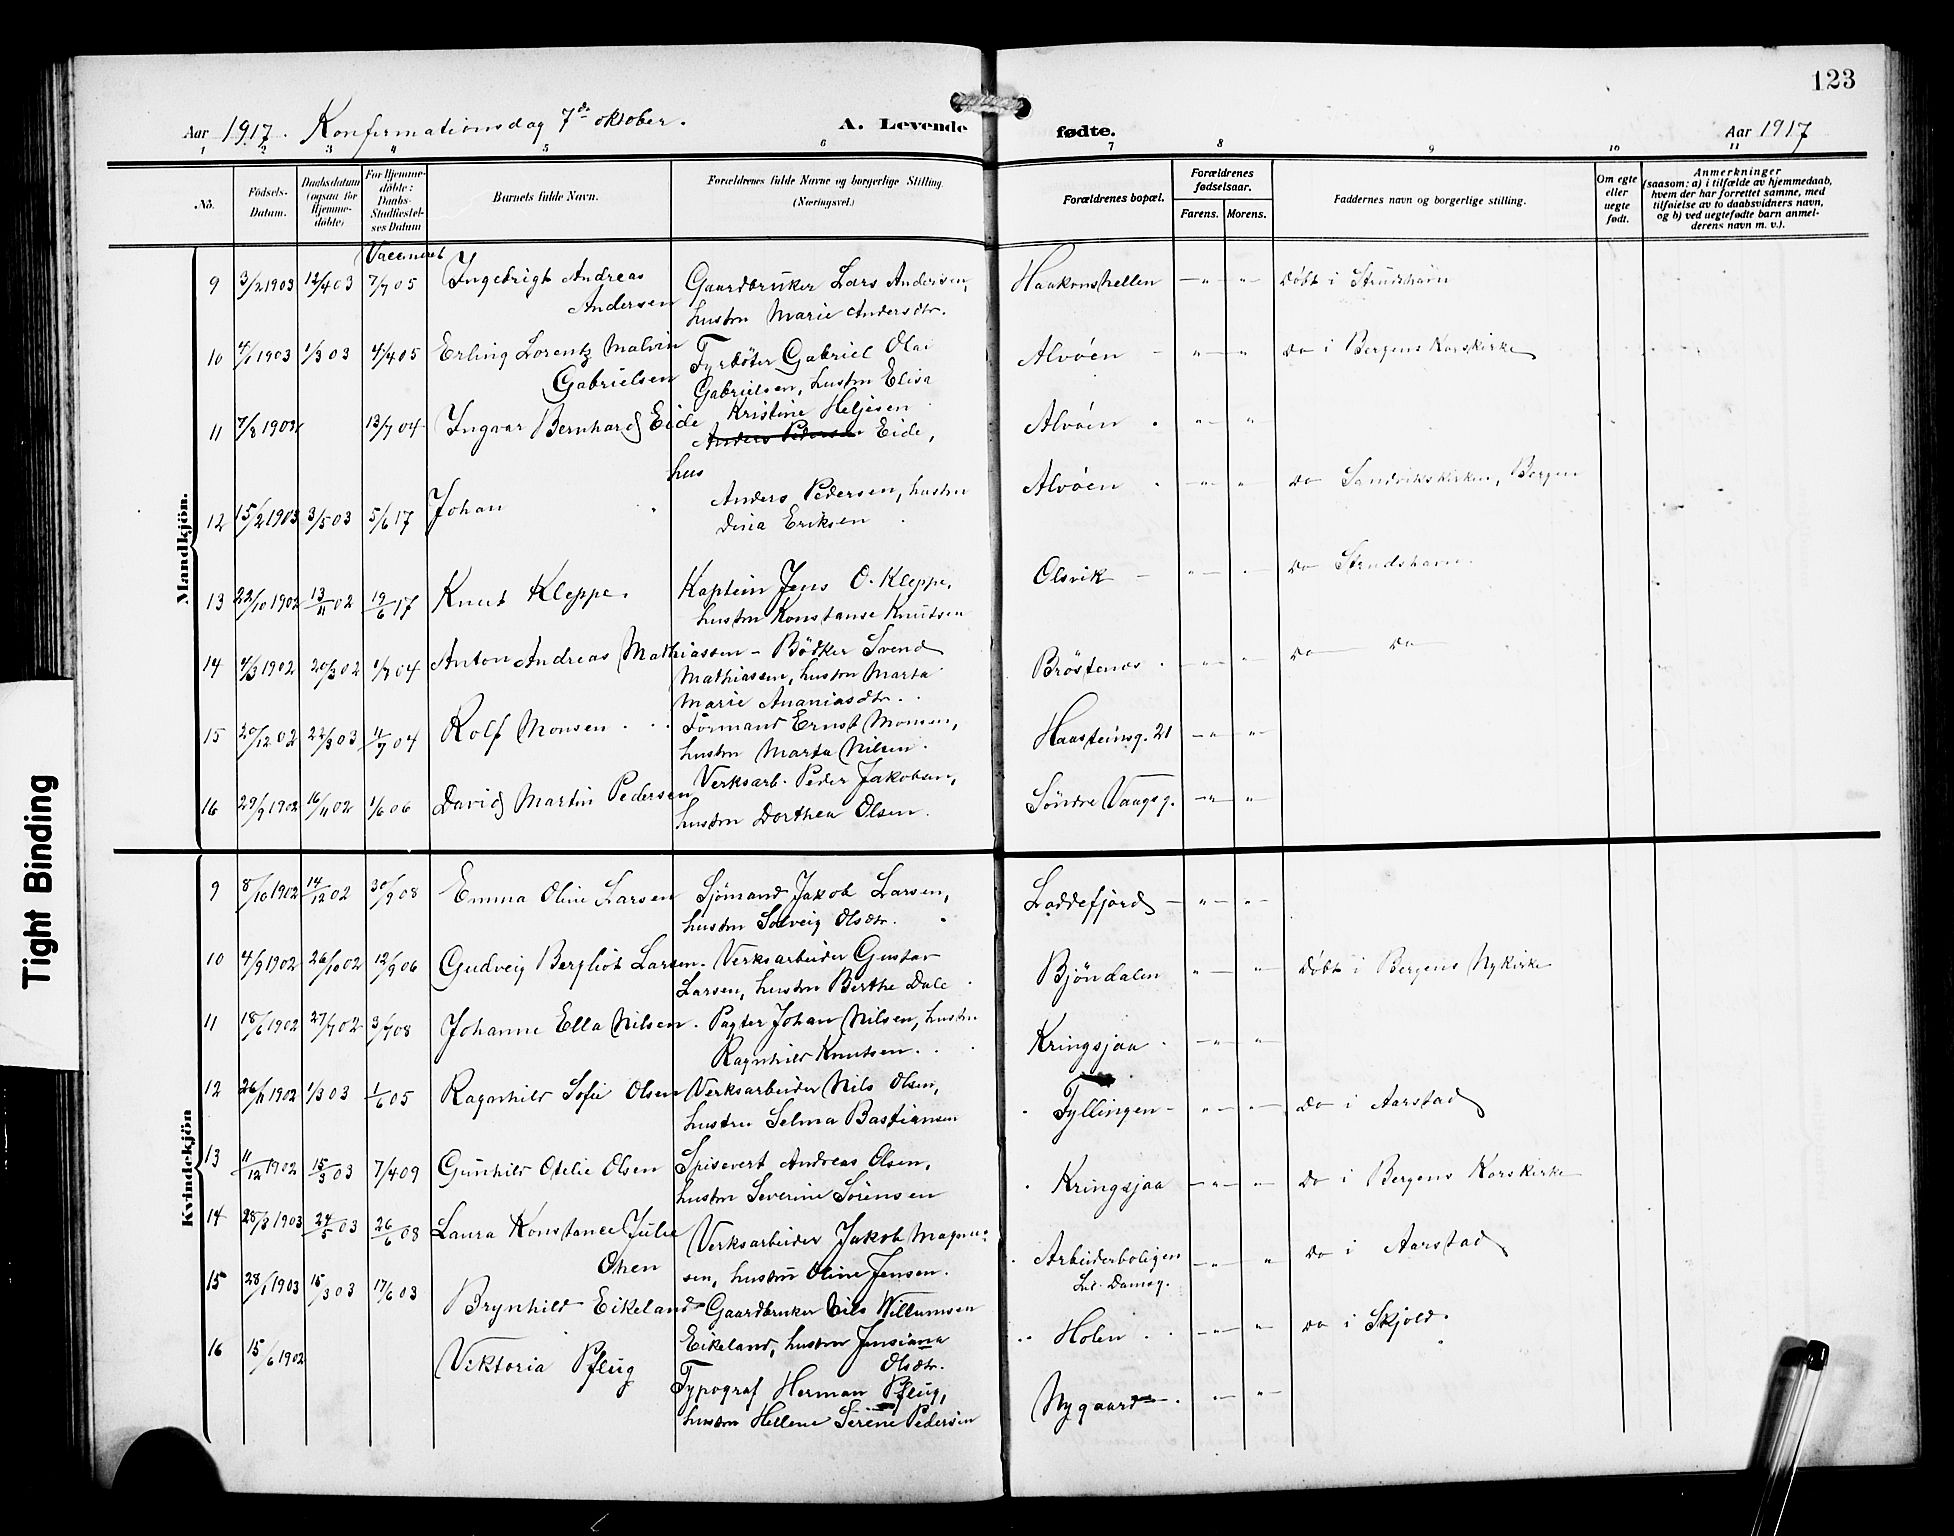 123
Aar 1917. Konfirmationsdag 7de oktober.
A. Levende fødte.
Aar 1917
1 2 3 4 5 6 7 8 9 10 11
No.
Fødsels-Datum.
Daabsdatum (ogsaa for Hjemmedøbte)
For Hjemmedøbte: Daabs-Stadfæstelses Datum
Barnets fulde Navn.
Forældrenes fulde Navne og borgerlige Stilling. (Næringsvei.)
Forældrenes bopæl.
Forældrenes fødselsaar.
Farens. Morens.
Faddernes navn og borgerlige stilling.
Om egte eller uegte født.
Anmerkninger
(saasom: a) i tilfælde av hjemmedaab,
hvem der har forrettet samme, med
tilføielse av to daabsvidners navn,
og b) ved uegtefødte barn anmel-
derens navn m. v.).
Mandkjön.
Vaccineret
9 3/2 1903 12/4 03 7/7 05 Ingebrigt Andreas Gaardbruker Lars Andersen, Haakonshellen — " — " Döbt i Strudshavn
Andersen hustru Marie Andersdtr.
10 4/1 1903 1/3 03 4/4 05 Erling Lorentz Malvin Fyrböter Gabriel Olai Alvöen — " — " Do i Bergens Korskirke
Gabrielsen Gabrielsen, hustru Elisa
Kristine Heljesen
11 7/8 1902 13/7 04 Ingvar Bernhard Eide Anders Pedersen Eide, Alvöen — " — "
hus
12 15/2 1903 3/5 03 5/6 17 Johan " Anders Pedersen, hustru Alvöen — " — " Do Sandvikskirken, Bergen
Dina Eriksen
13 22/10 1902 13/11 02 19/6 17 Knut Kleppe. Kaptein Jens O. Kleppe, Olsvik — " — " Do Strudshavn.
hustru Konstanse Knutsen
14 4/3 1902 20/3 02 1/7 04 Anton Andreas Mathiassen - Bödker Svend Bröstenes — " — " Do Do
Mathiassen, hustru Marta
Marie Ananiasdtr.
15 20/12 02 22/3 03 11/7 04 Rolf Monsen Formand Ernst Monsen, Haasteinsg. 21 — " — "
hustru Marta Nilsen.
16 29/9 1902 16/11 02 1/6 06 David Martin Pedersen Verksarb. Peder Jakobsen, Söndre Vaagsg. — " — "
hustru Dorthea Olsen.
Kvindekjön
9 8/10 1902 14/12 02 30/9 08 Emma Oline Larsen Sjömand Jakob Larsen, Loddefjord — " — "
hustru Solveig Olsdtr.
10 4/9 1902 26/10 02 12/9 06 Gudveig Bergliot Larsen. Verksarbeider Gustav Bjöndalen " — " Döbt i Bergens Nykirke
Larsen, hustru Berthe Dale
11 18/6 1902 27/7 02 3/7 08 Johanne Ella Nilsen. Pagter Johan Nilsen, hustru Kringsjaa — " — "
Ragnhild Knutsen.
12 26/11 1902 1/3 03 1/6 05 Ragnhild Sofie Olsen Verksarbeider Nils Olsen, Fyllingen — " — " Do i Aarstad
hustru Selma Bastiansen
13 11/12 1902 15/3 03 7/4 09 Gunhild Otelie Olsen Spisevert Andreas Olsen, Kringsjaa — " — " Do i Bergens Korskirke
hustru Severine Sörensen
14 28/3 1903 24/5 03 26/6 08 Laura Konstance Julie Verksarbeider Jakob Magnu- Arbeiderboligen — " — " Do i Aarstad
Olsen sen, hustru Oline Jensen. Damsg.
15 28/1 1903 15/3 03 17/6 03 Brynhild Eikeland Gaardbruker Nils Willumsen Holen — " — " Do i Skjold.
Eikeland, hustru Jensiana
Olsdtr.
16 15/6 1902 Viktoria Pflug Typograf Herman Pflug, Nygaard — " — "
hustru Hellene Serene Pedersen
Tight Binding